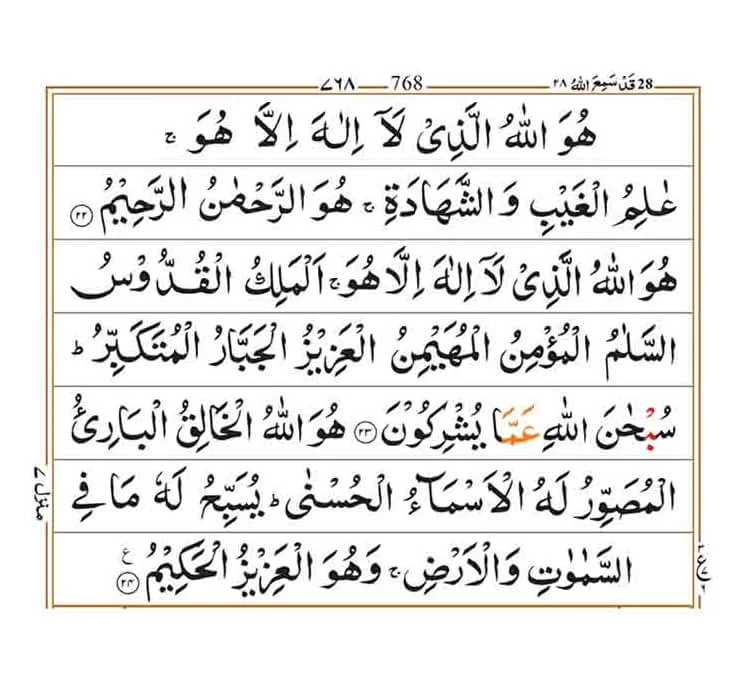 28 قَدْ سَمِعَ اللهُ ٢٨ 768 ٧٦٨
هُوَ اللّٰهُ الَّذِىْ لَآ اِلٰهَ اِلَّا هُوَ ۚ
عٰلِمُ الْغَيْبِ وَالشَّهَادَةِ ۚ هُوَ الرَّحْمٰنُ الرَّحِيْمُ ﴿۲۲﴾
هُوَ اللّٰهُ الَّذِىْ لَآ اِلٰهَ اِلَّا هُوَ ۚ اَلْمَلِكُ الْقُدُّوْسُ
السَّلٰمُ الْمُؤْمِنُ الْمُهَيْمِنُ الْعَزِيْزُ الْجَبَّارُ الْمُتَكَبِّرُ ؕ
سُبْحٰنَ اللّٰهِ عَمَّا يُشْرِكُوْنَ ﴿۲۳﴾ هُوَ اللّٰهُ الْخَالِقُ الْبَارِئُ
الْمُصَوِّرُ لَهُ الْاَسْمَآءُ الْحُسْنٰى ؕ يُسَبِّحُ لَهٗ مَا فِى
السَّمٰوٰتِ وَالْاَرْضِ ۚ وَهُوَ الْعَزِيْزُ الْحَكِيْمُ ﴿۲۴﴾ ع
منزل ٧